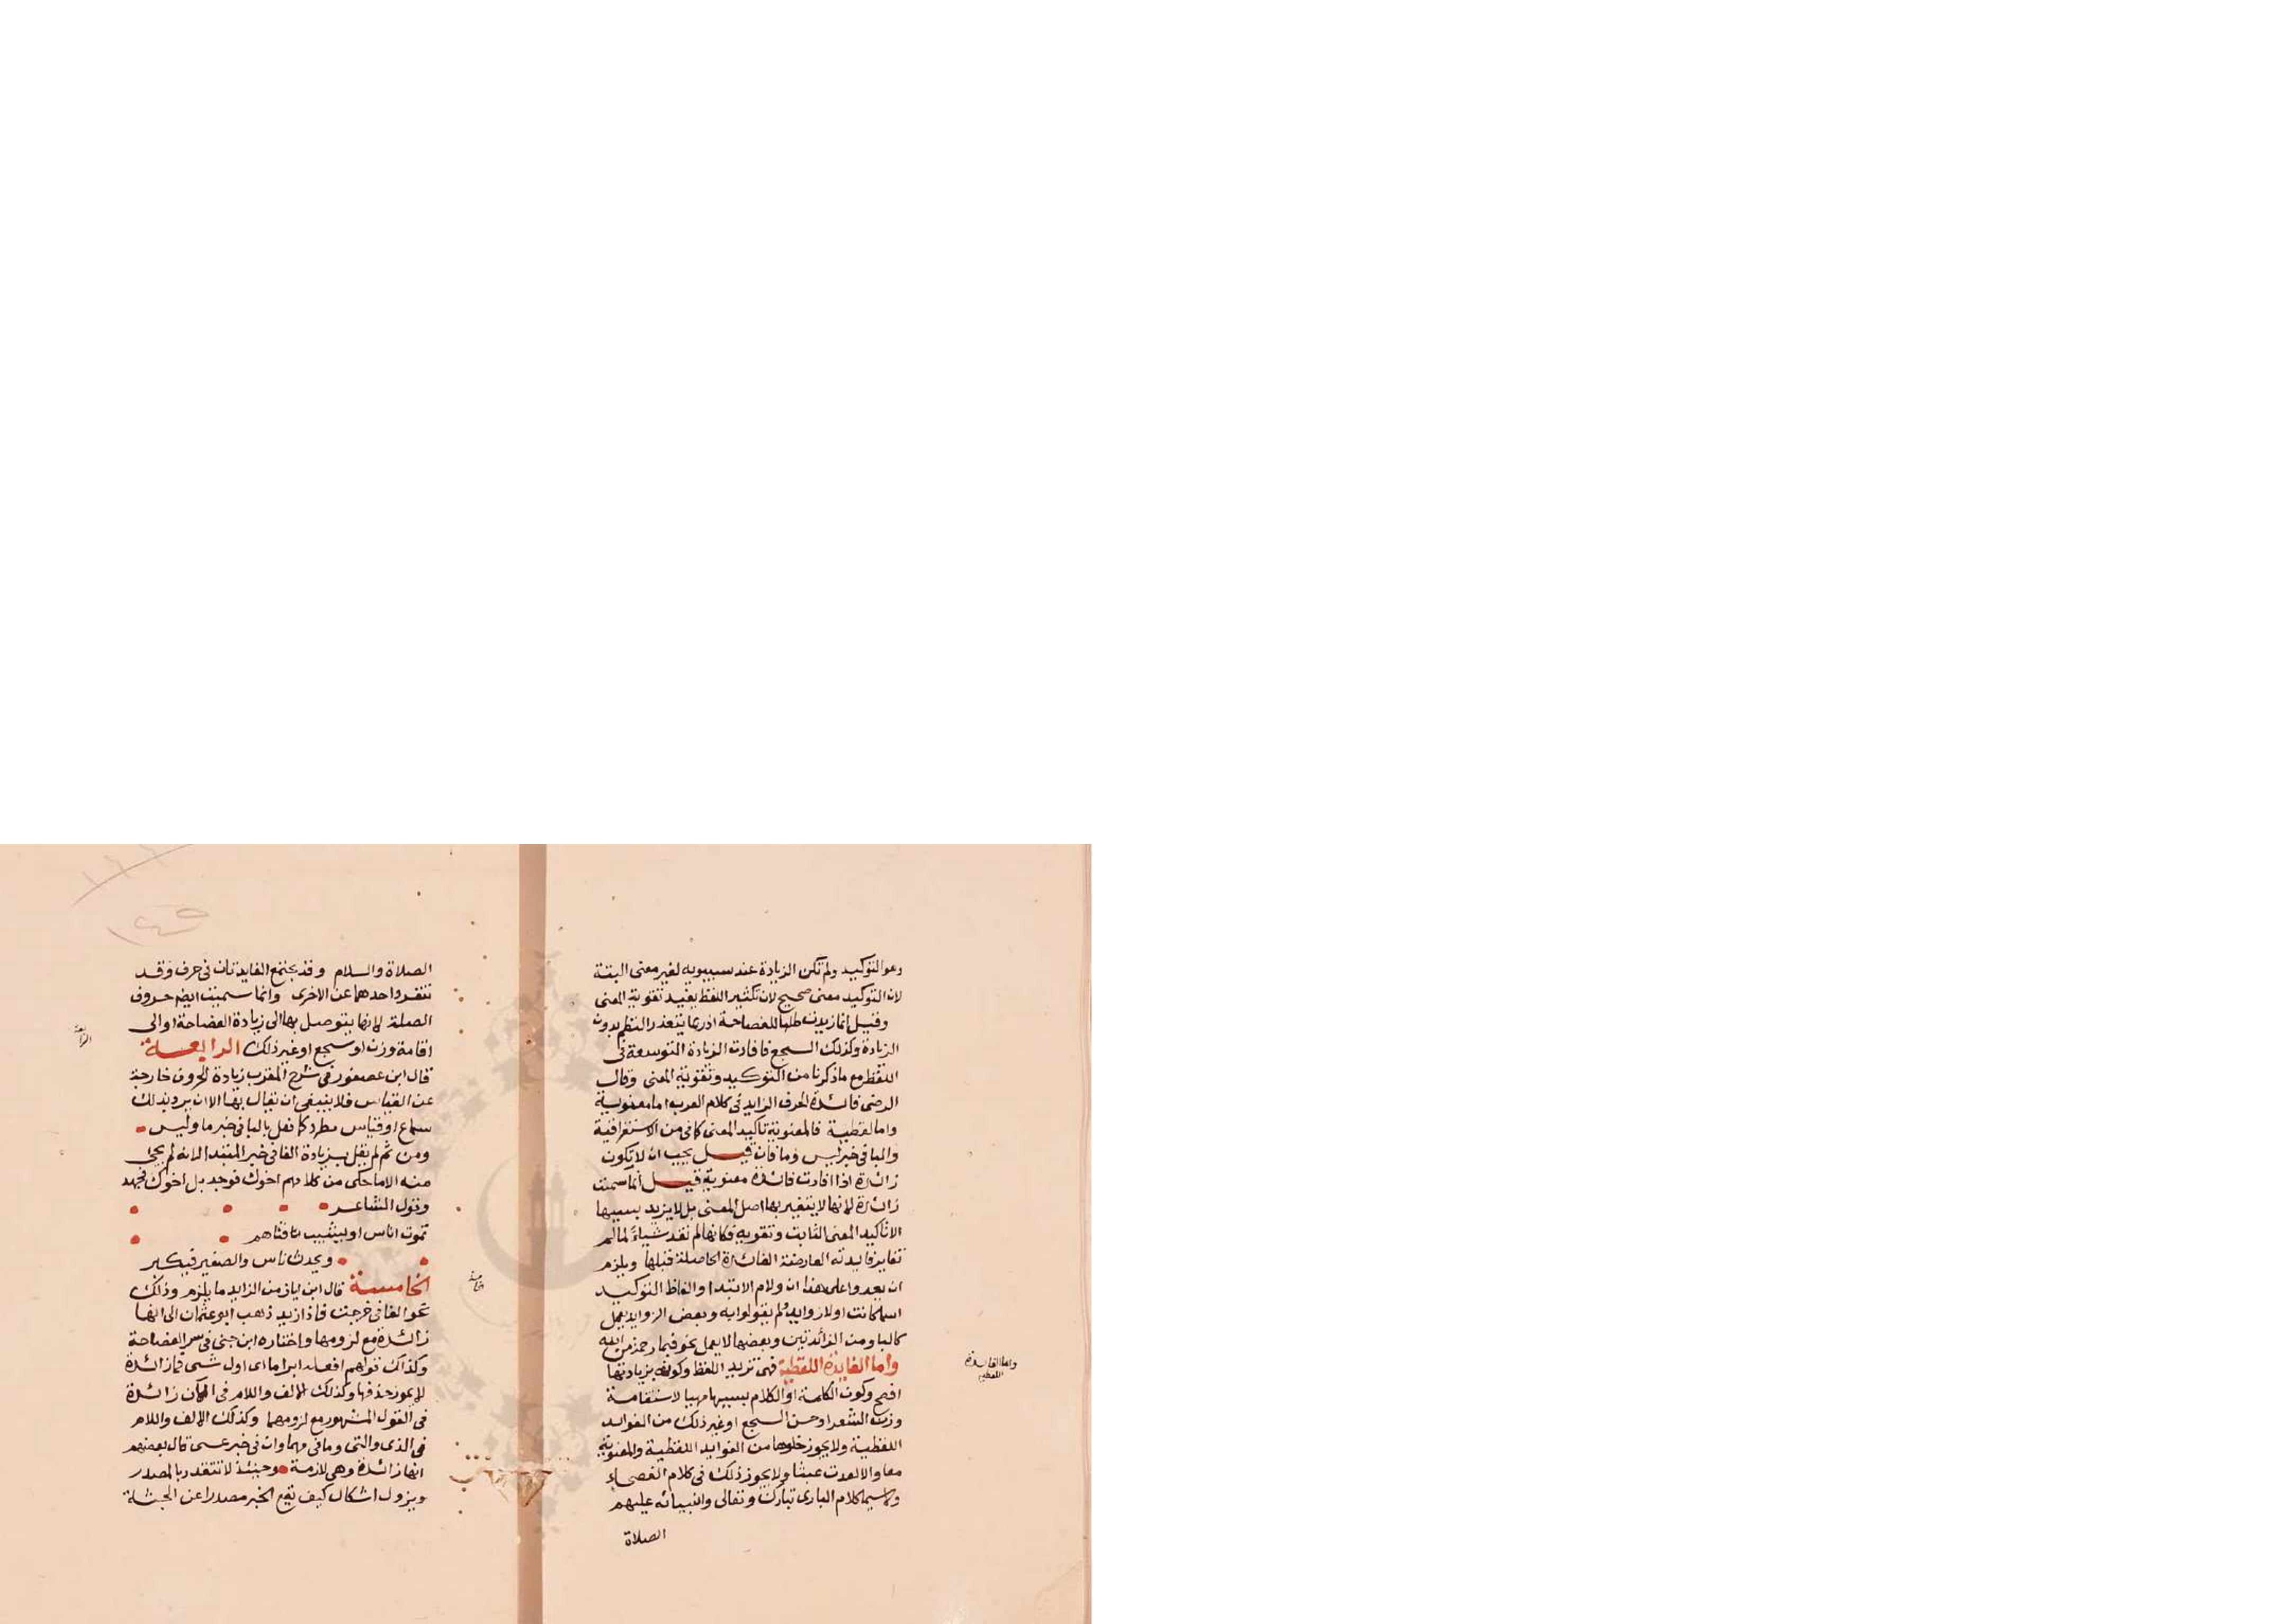 وهو التوكيد ولم تكن الزيادة عند سيبويه لغير معنى البتة
لان التوكيد معنى صحيح لان تكثير اللفظ يفيد تقوية المعنى
وقيل انما زيدت طلبا للفصاحة اذ ربما يتعذر النظم بدون
الزيادة وكذلك السجع فافادت الزيادة التوسعة فى
اللفظ مع ما ذكرنا من التوكيد وتقوية المعنى وقال
الرضى فائدة الحرف الزايد فى كلام العرب اما معنوية
واما لفظية فالمعنوية تأكيد المعنى كما فى من الاستغراقية
والبا فى خبر ليس وما فان قيل يجب ان لا تكون
زائدة اذا افادت فائدة معنوية قيل انما سميت
زائدة لانها لا يتغير بها اصل المعنى بل لا يزيد بسببها
الا تاكيد المعنى الثابت وتقويه فكانها لم تفد شيأ لما لم
تغاير فايدته العارضة الفائدة الحاصلة قبلها ويلزم
ان يعدوا على هذا ان ولام الابتدا والفاظ التوكيد
اسما كانت اولا زوايد ولم يقولوا به وبعض الزوايد يعمل
كالبا ومن الزائدتين وبعضها لا يعمل نحو فبما رحمة من الله
واما الفايدة اللفظية فهى تزيد اللفظ وكونه بزيادتها
افصح وكون الكلمة او الكلام بسببها مهيبا لاستقامة
وزن الشعر او حسن السجع او غير ذلك من الفوايد
اللفظية ولا يجوز خلوها من الفوايد اللفظية والمعنوية
معا والا لعدت عبثا ولا يجوز ذلك فى كلام الفصحاء
ولاسيما كلام البارى تبارك وتعالى وانبيائه عليهم
الصلاة
واما الفايدة
اللفظية
الصلاة والسلام وقد يجتمع الفايدتان فى حرف وقد
تنفرد احدهما عن الاخرى وانما سميت ايضا حروف
الصلة لانها يتوصل بها الى زيادة الفصاحة او الى
اقامة وزن او سجع او غير ذلك الرابعة
قال ابن عصفور فى شرح المقرب زيادة الحروف خارجة
عن القياس فلا ينبغى ان يقال بها الا ان يرد بذلك
سماع او قياس مطرد كما فعل بالبا فى خبر ما وليس
ومن ثم لم يقل بزيادة الفا فى خبر المبتدا لانه لم يجئ
منه الا ما حكى من كلامهم اخوك فوجد بل اخوك فجهد
وقول الشاعر
تموت اناس او يشيب فتاهم
ويحدث ناس والصغير فيكبر
الخامسة قال ابن اياز من الزايد ما يلزم وذلك
نحو الفا فى خرجت فاذا زيد ذهب ابو عثمان الى انها
زائدة مع لزومها واختاره ابن جنى فى سر الفصاحة
وكذلك قولهم افعله ابرا ما اى اول شى فما زائدة
لا يجوز حذفها وكذلك الالف واللام فى الآن زائدة
فى القول المشهور مع لزومهما وكذلك الالف واللام
فى الذى والتى وما فى مهما وان فى خبر عسى قال بعضهم
انها زائدة وهى لازمة وحينئذ لا تتقدر بالمصدر
ويزول اشكال كيف يقع الخبر مصدرا عن الجثة
الرابعة
خامسة